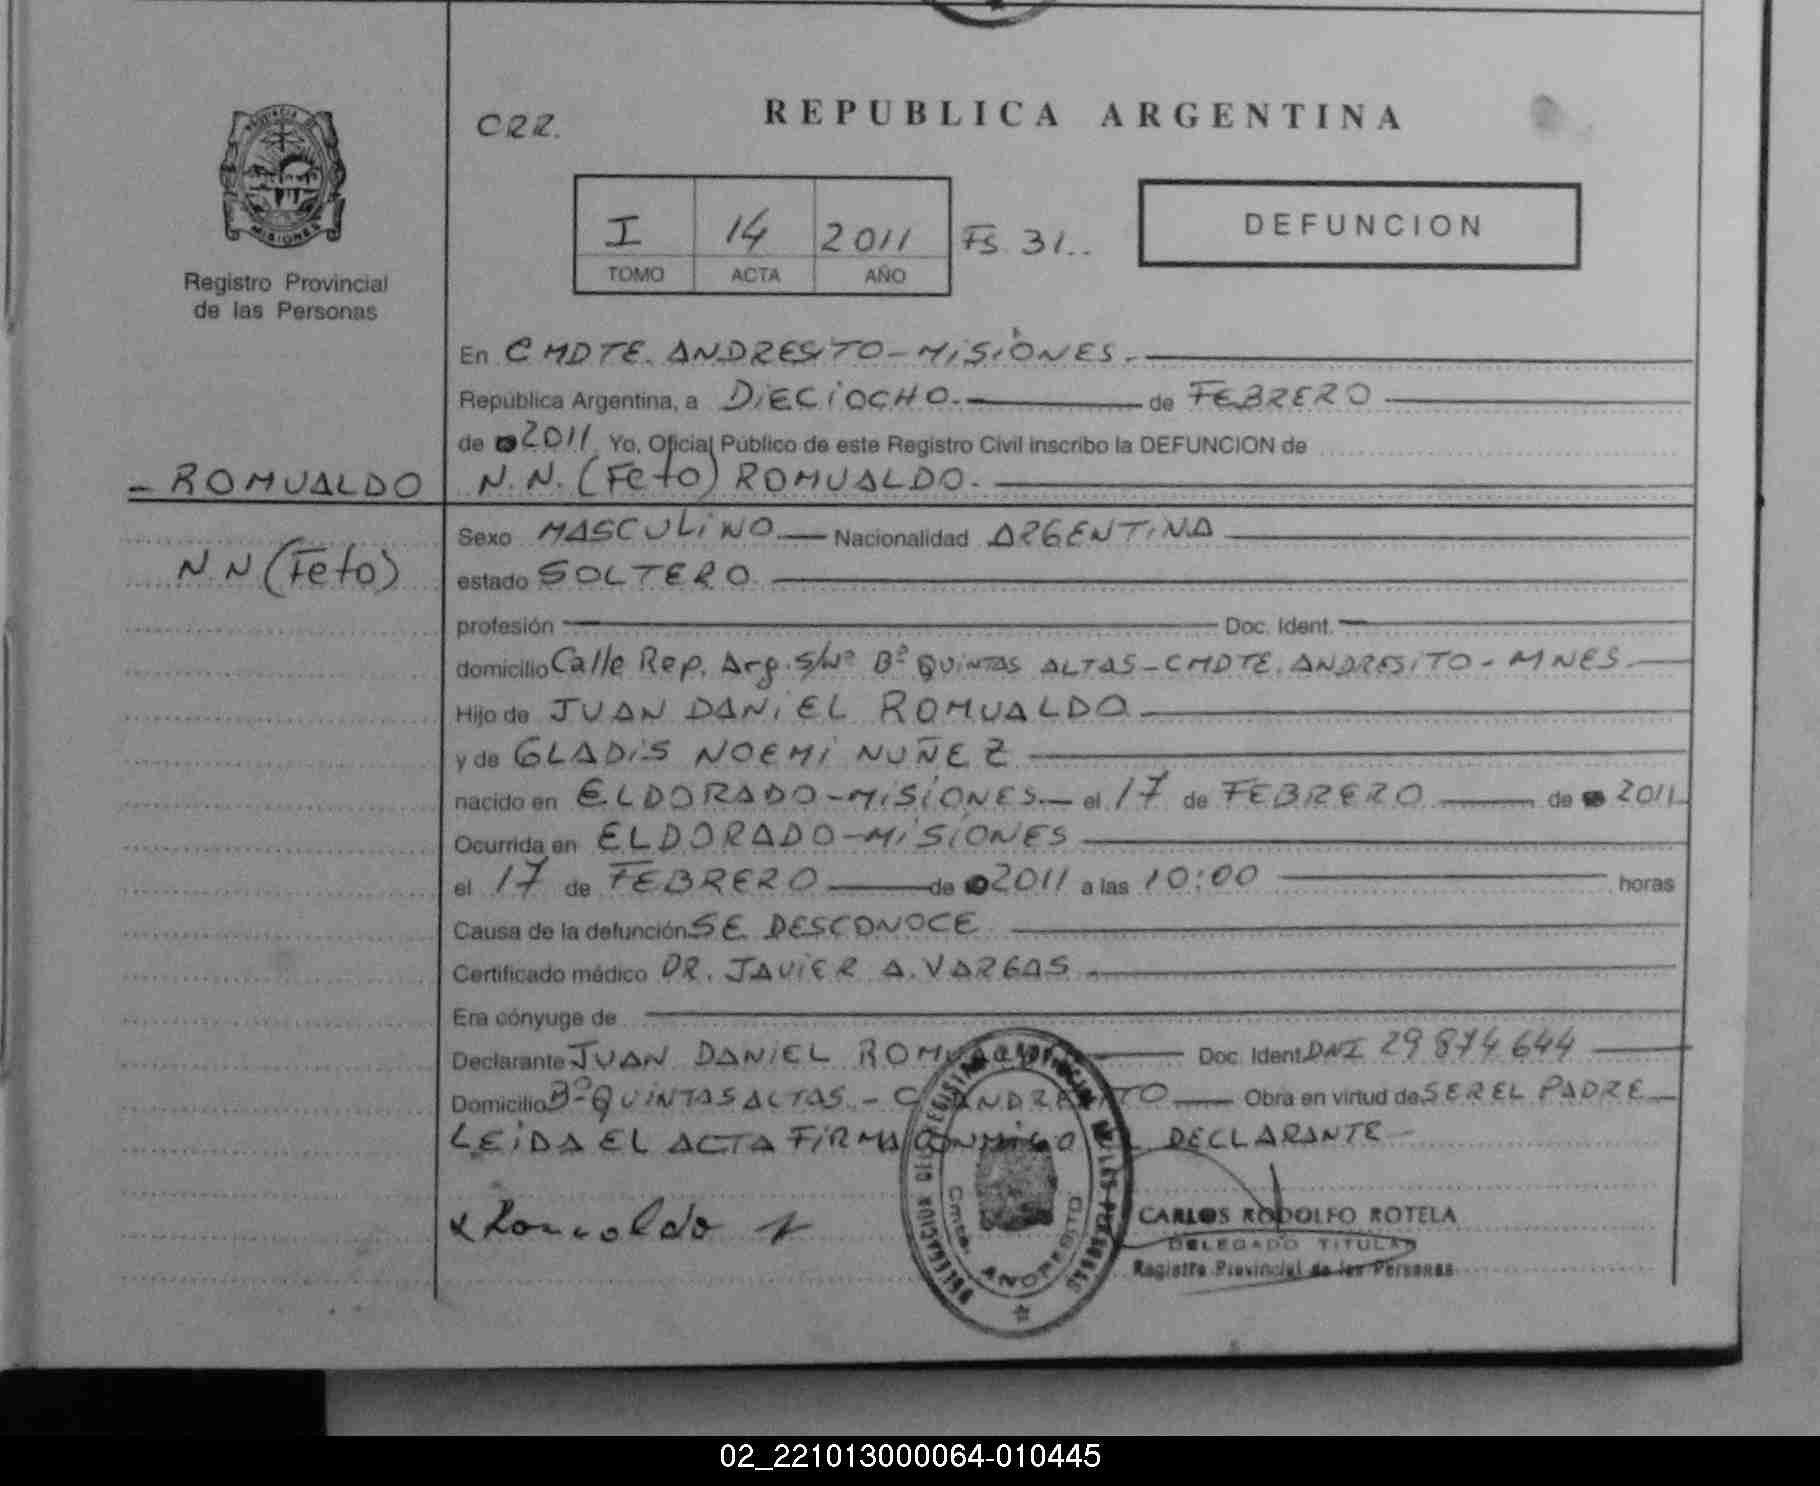 PROVINCIA DE
MISIONES
Registro Provincial
de las Personas
CRR.
REPUBLICA ARGENTINA
I 14 2011 Fs. 31..
TOMO ACTA AÑO
DEFUNCION
En CMDTE. ANDRESITO - MISIONES.
República Argentina, a DIECIOCHO. de FEBRERO
de 2011 Yo, Oficial Público de este Registro Civil inscribo la DEFUNCION de
- ROMUALDO
N.N. (Feto) ROMUALDO.
N N (Feto)
Sexo MASCULINO Nacionalidad ARGENTINA
estado SOLTERO
profesión Doc. Ident.
domicilio Calle Rep. Arg. S/Nº Bº QUINTAS ALTAS - CMDTE. ANDRESITO - MNES
Hijo de JUAN DANIEL ROMUALDO
y de GLADIS NOEMI NUÑEZ
nacido en ELDORADO - MISIONES el 17 de FEBRERO de 2011
Ocurrida en ELDORADO - MISIONES
el 17 de FEBRERO de 2011 a las 10:00 horas
Causa de la defunción SE DESCONOCE
Certificado médico DR. JAVIER A. VARGAS
Era cónyuge de
Declarante JUAN DANIEL ROMUALDO Doc. Ident. DNI 29 874 644
Domicilio Bº QUINTAS ALTAS - C. ANDRESITO Obra en virtud de SER EL PADRE
LEIDA EL ACTA FIRMA CONMIGO EL DECLARANTE
x Romualdo
DELEGACION DEL REGISTRO PROVINCIAL DE LAS PERSONAS
CMTE. ANDRESITO
CARLOS RODOLFO ROTELA
DELEGADO TITULAR
Registro Provincial de las Personas
02_221013000064-010445